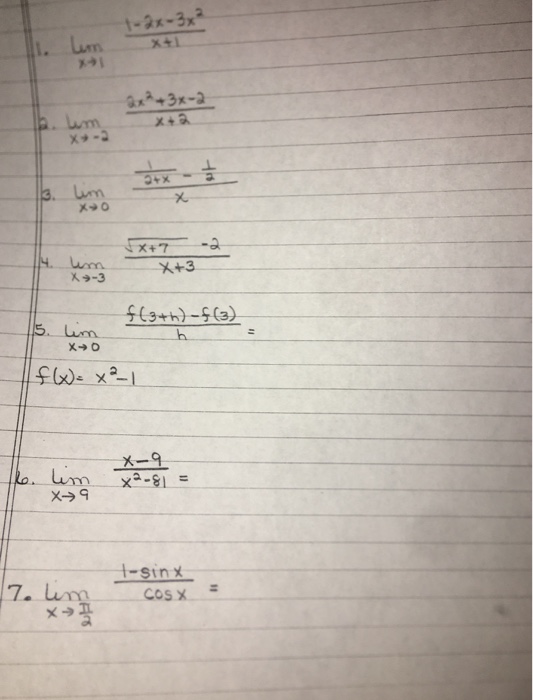 1. lim x→1 (1-2x-3x²)/(x+1)
2. lim x→-2 (2x²+3x-2)/(x+2)
3. lim x→0 (1/(2+x) - 1/2)/x
4. lim x→-3 (√(x+7) -2)/(x+3)
5. lim x→0 (f(3+h)-f(3))/h =
f(x)= x²-1
6. lim x→9 (x-9)/(x²-81) =
7. lim x→π/2 (1-sinx)/(cosx) =